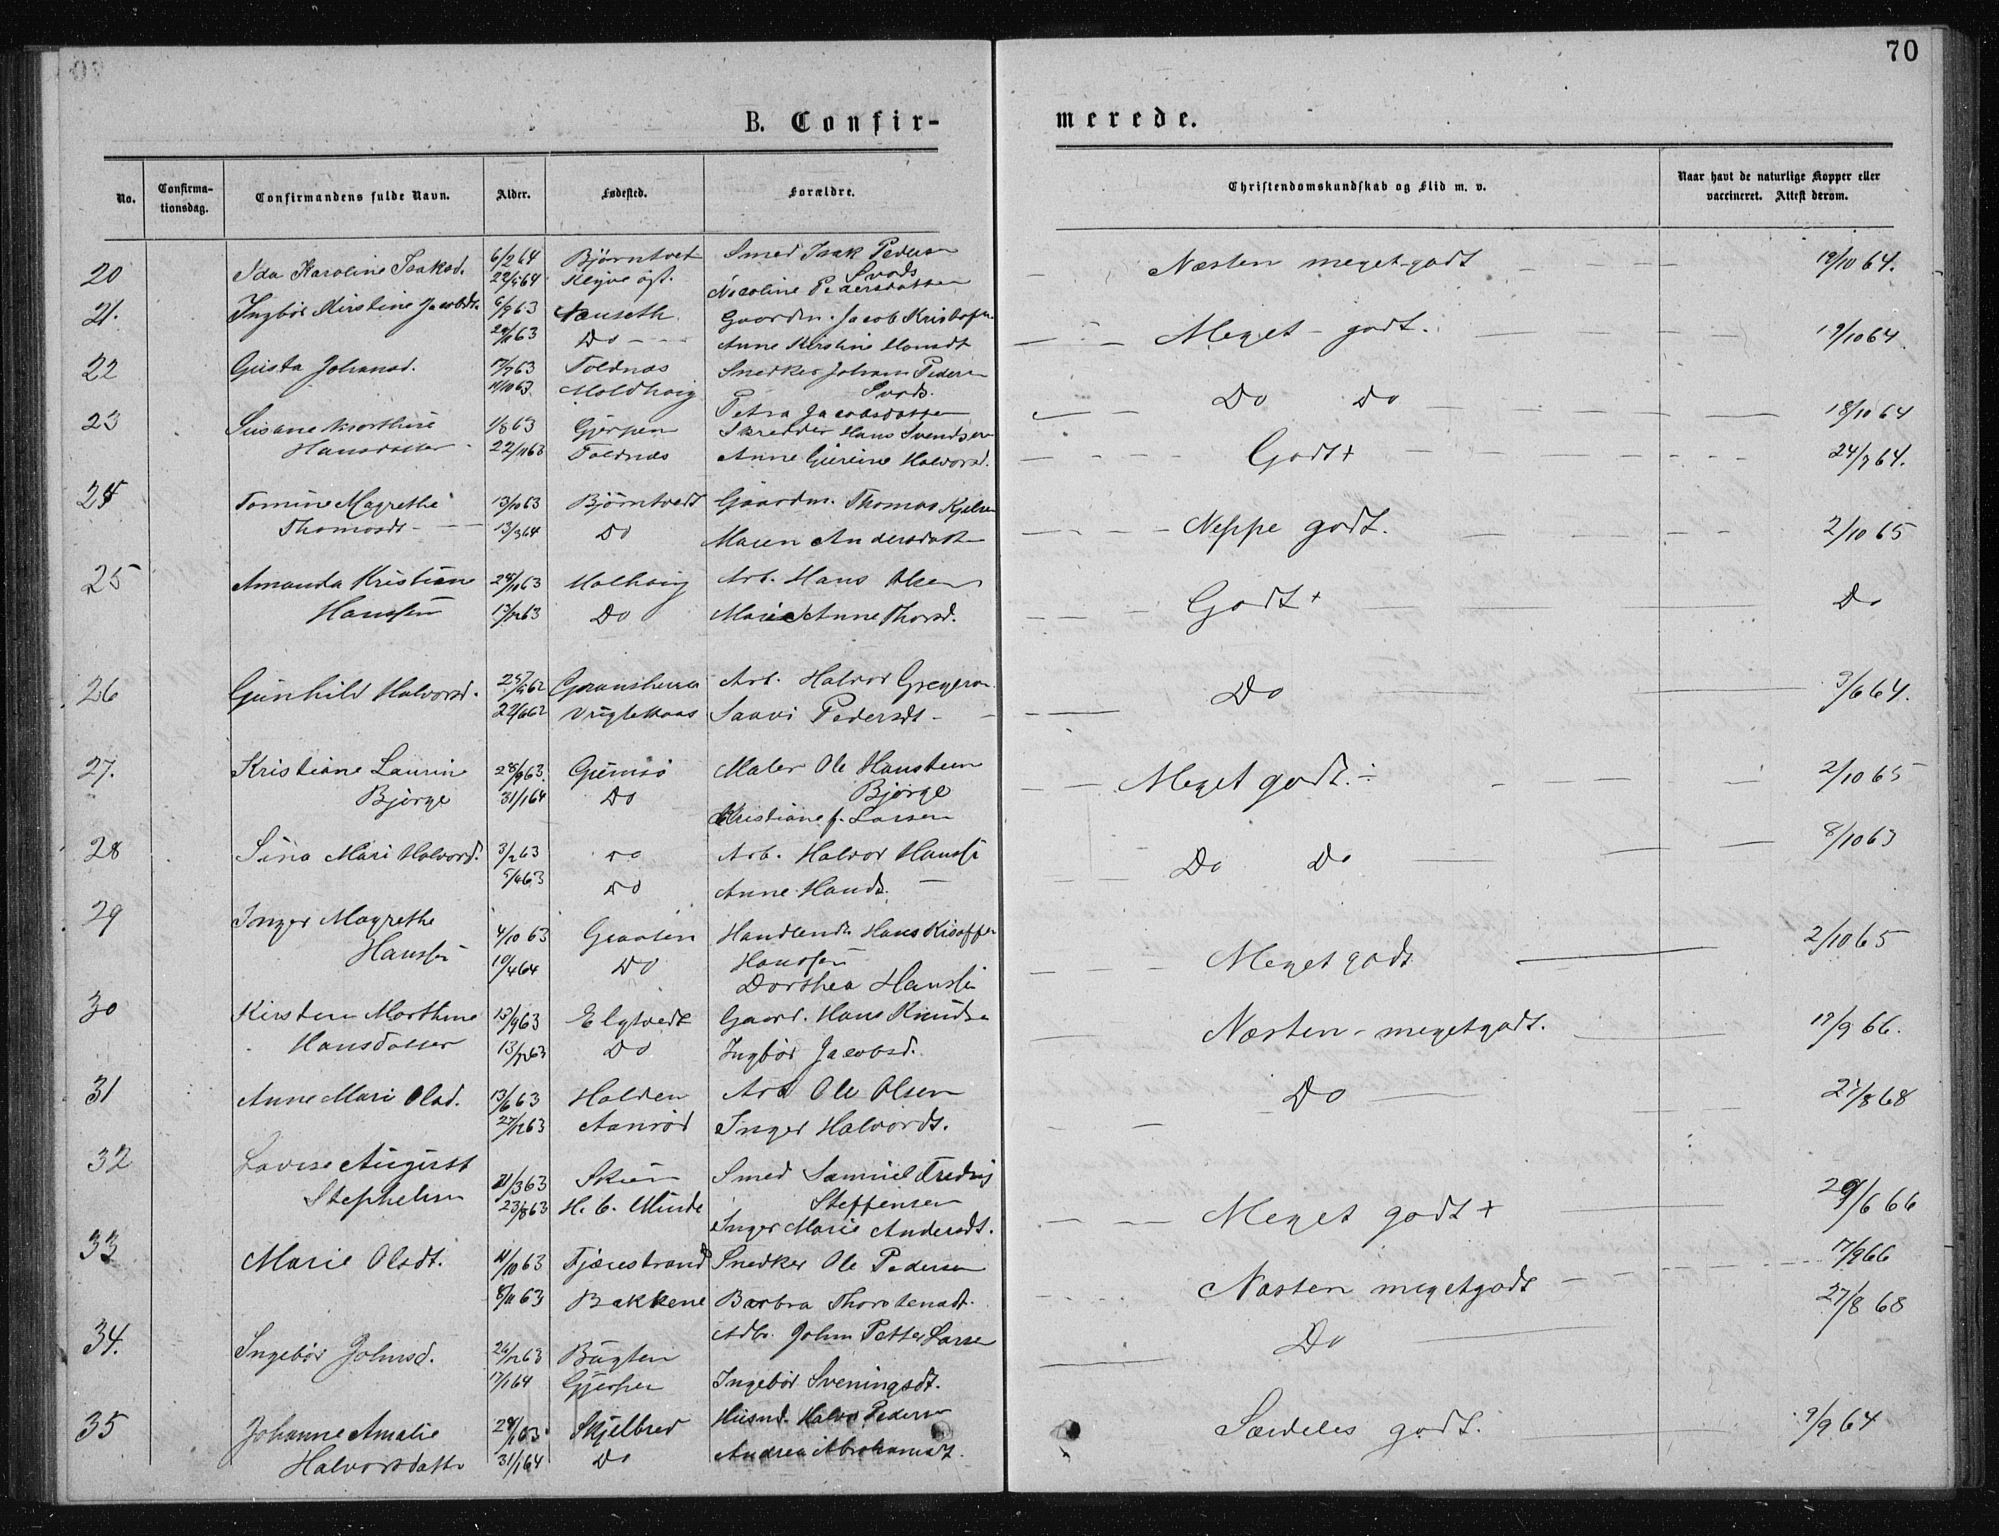 70
B. Confir-
merede.
No.
Confirma-
tionsdag.
Confirmandens fulde Navn.
Alder.
Fødested.
Forældre.
Christendomskundskab og Flid m. v.
Naar havt de naturlige Kopper eller
vaccineret. Attest derom.
20 Ida Karoline Isaksd. 6/2 64 Bjørntvet Smed Isak Pedersen
Svods
Nicoline Pedersdatter
Næsten meget godt 19/10 64.
21. Ingbør Kirstine Jacobsdt. 6/9 63 Gaardm. Jacob Kristofers.
29/11 63 Do Anne Kirstine Hansdt
Meget godt. 19/10 64
22 Gusta Johansd. 17/7 63 Toldnæs Snedker Johan Pedersen
11/10 63 Moldhoug Svods.
Petra Jacobsdatter
Do Do 18/10 64
23 Susane Marthine 1/8 63 Gjerpen Skrædder Hans Svendsen
Hansdatter 22/11 63 Toldnæs Anne Halvorsd.
Godt+ 24/7 64.
24 Tomine Magrethe 13/10 63 Bjørntvedt Gaardm. Thomas
Thomasdt 13/3 64 Do Maren Andersdatt
Neppe godt. 2/10 65
25 Amanda Kristiane 28/10 63 Molhoug Arb. Hans Olsen
Hanssen 13/12 63 Do Marie Anne Thorsd.
Godt+ Do
26 Gunhild Halvorsd. 25/4 62 Gransherra Arb. Halvor
22/6 62 Saavi Pedersdt
Do 3/6 64.
27. Kristiane Laurin 28/9 63. Gimsø Maler Ole Hansteen
Bjørge 31/1 64 Do Bjørge
Kristiane f. Larsen
Meget godt ÷ 2/10 65
28 Sina Mari Halvord. 3/2 63 Do Arb. Halvor Hanss.
5/4 63 Do Anne Hansd.
Do Do 8/10 63
29 Inger Magrethe
Hanssen 4/10 63 Graaten Handlende Hans
10/4 64 Do Hanssen
Dorthea Hanssen
Meget godt 2/10 65
30 Kirsten Marthine 15/9 63 Elgtvedt Gaard. Hans Knuds.
Hansdatter 13/12 63 Do Ingbør Jacobsd.
Næsten meget godt. 19/9 66.
31 Anne Mari Olsd. 13/6 63 Holden Arb Ole Olsen
27/12 63 Aanrød Inger Halvordt.
Do 27/8 68
32 Lovise August
Stephelsen 21/3 63 Skien Smed Samuel Fredrig
23/8 63 Steffensen
Inger Marie Andersdt.
Meget godt + 29/6 66
33 Marie Olsdt. 11/10 63 Tjærestrand Snedker Ole Pedersen
8/11 63 Bakkene Barbra Thorstensdt.
Næsten meget godt 17/9 66
27/8 68
34. Ingebør Johnsd. 26/12 63 Bugten Arb. John Petter Larsen
17/1 64 Gjerpen Ingebør Sveningsdt.
Do
35 Johanne Amalie 29/10 63 Skjelbred Husmd. Halvor Pedersen
Halvorsdatter 31/1 64 Do Andrea Abrahamsdt.
Særdeles godt. 9/9 64